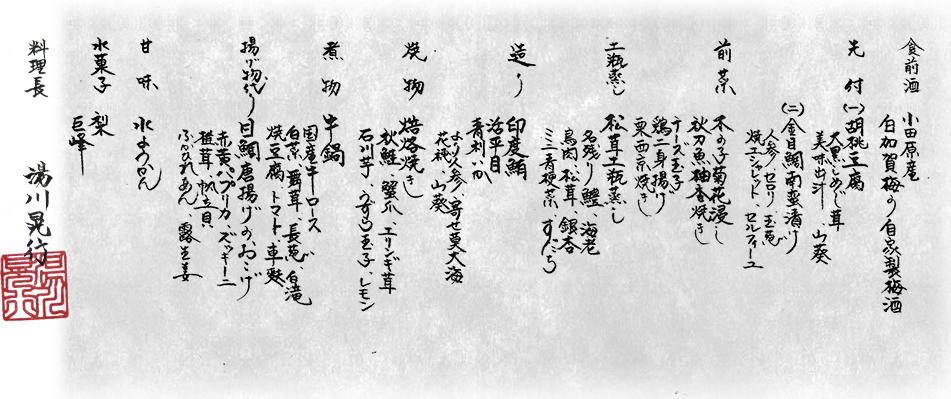 食前酒 小田原産
白加賀梅の自家製梅酒
先付 (一) 胡桃豆腐
大黒しめじ茸
美味出汁、山葵
(二) 金目鯛南蛮漬け
人参、セロリ、玉葱
焼エシャレット、セルフィーユ
前菜 木の子菊花浸し
秋刀魚柚香焼き
チーズ玉子
鶏二身揚げ
栗西京焼き
土瓶蒸し 松茸土瓶蒸し
名残り鱧、海老
鳥肉、松茸、銀杏
三ッ葉根菜、すだち
造り 印度鮪
活平目
青利いか
より人参、寄せ莫大海
花穂、山葵
焼物 焙烙焼き
秋鮭、蟹爪、エリンギ茸
石川芋、うずら玉子、レモン
煮物 牛鍋
国産牛ロース
白菜、舞茸、長葱、白滝
焼豆腐、トマト、車麩
揚げ物代り 目鯛唐揚げのおこげ
赤黄パプリカ、ズッキーニ
椎茸、帆立貝
ふかひれあん、露生姜
甘味 水ようかん
水菓子 梨
巨峰
料理長 湯川晃